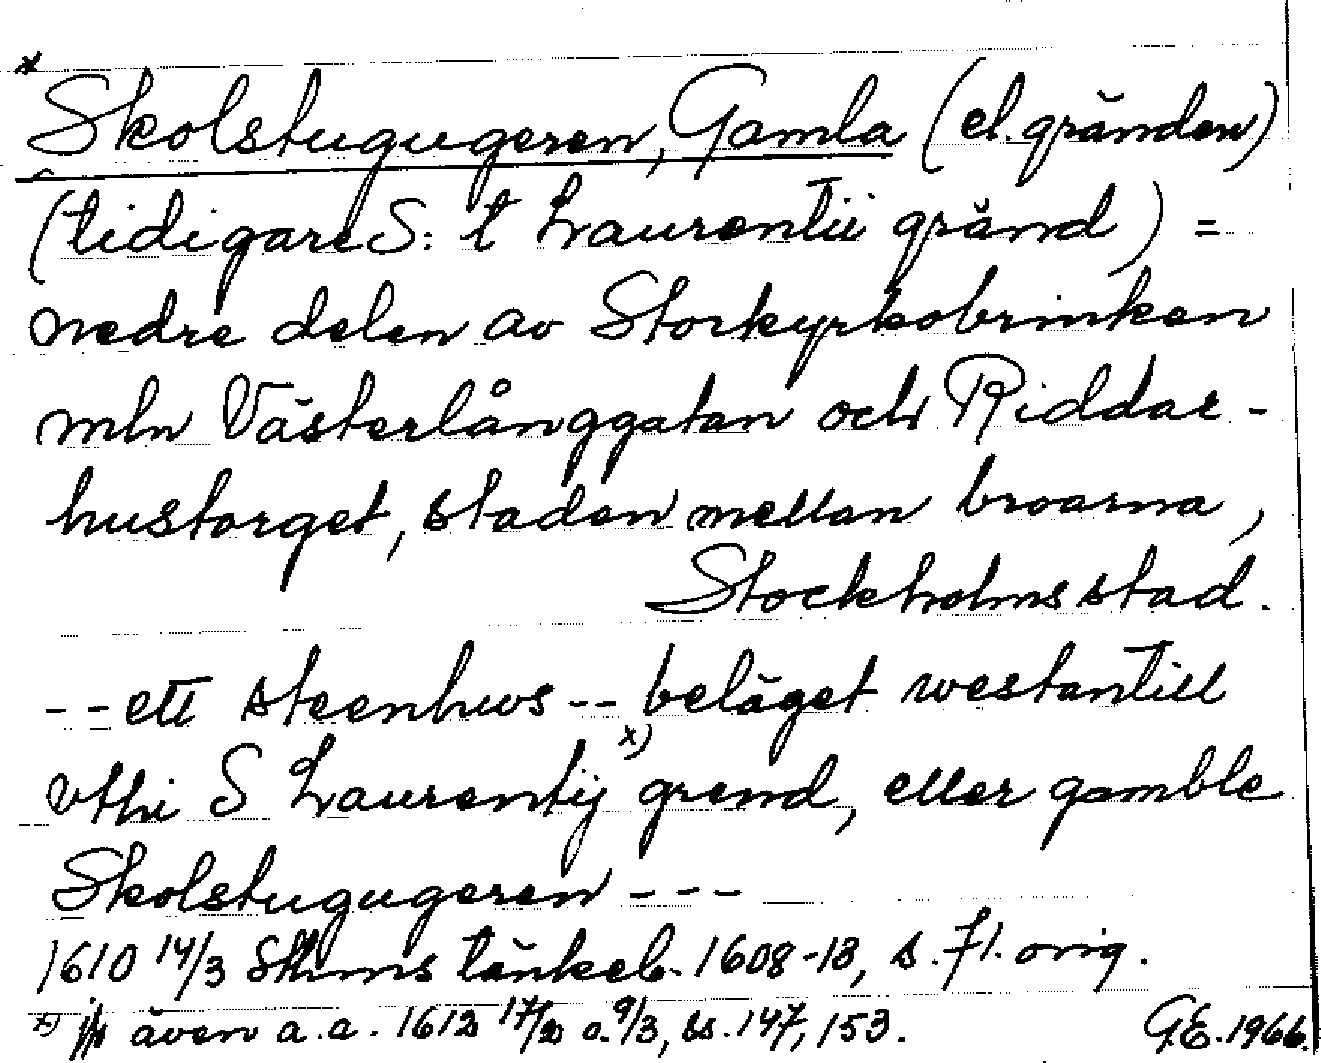 * Skolstugugeren, Gamla (el. gränden)
(tidigare S:t Laurentii gränd) =
nedre delen av Storkyrkobrinken
mln Västerlånggatan och Riddar-
hustorget, staden mellan broarna,
Stockholms stad.
-- ett steenhws -- beläget westantill
vthi S Laurentij x) grend, eller gamble
Skolstugugeren ---
1610 14/3 Sthms tänkeb. 1608-13, s. 71. orig.
x) jfr även a.a. 1612 17/2 o. 9/3, ss. 147, 153.
G.E. 1966.